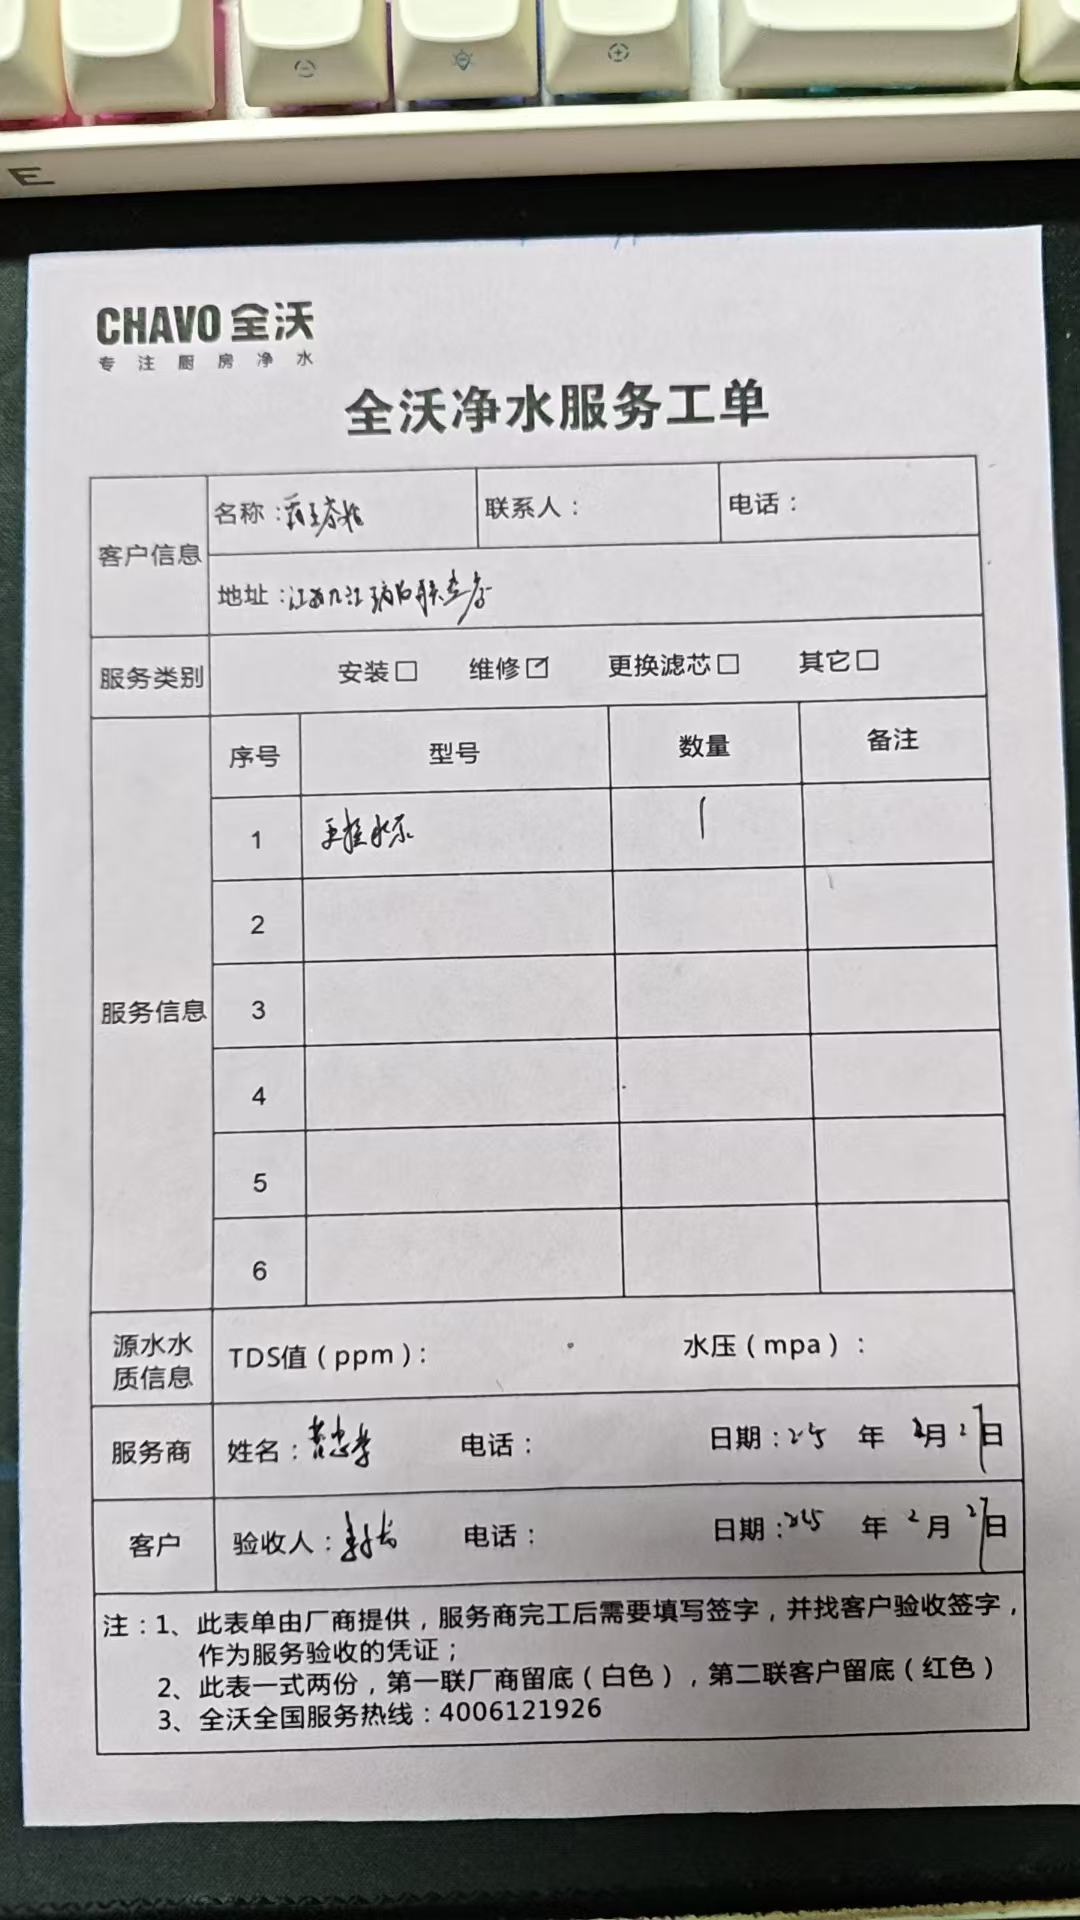 E
CHAVO 全沃
专注厨房净水
全沃净水服务工单
客户信息
名称： 联系人： 电话：
地址：江西九江
服务类别 安装□ 维修☑ 更换滤芯□ 其它□
服务信息
序号 型号 数量 备注
1 更换水泵 1
2
3
4
5
6
源水水质信息 TDS值（ppm）： 水压（mpa）：
服务商 姓名： 电话： 日期：25 年 2月27日
客户 验收人： 电话： 日期：2025 年 2月27日
注：1、此表单由厂商提供，服务商完工后需要填写签字，并找客户验收签字，
作为服务验收的凭证；
2、此表一式两份，第一联厂商留底（白色），第二联客户留底（红色）
3、全沃全国服务热线：4006121926